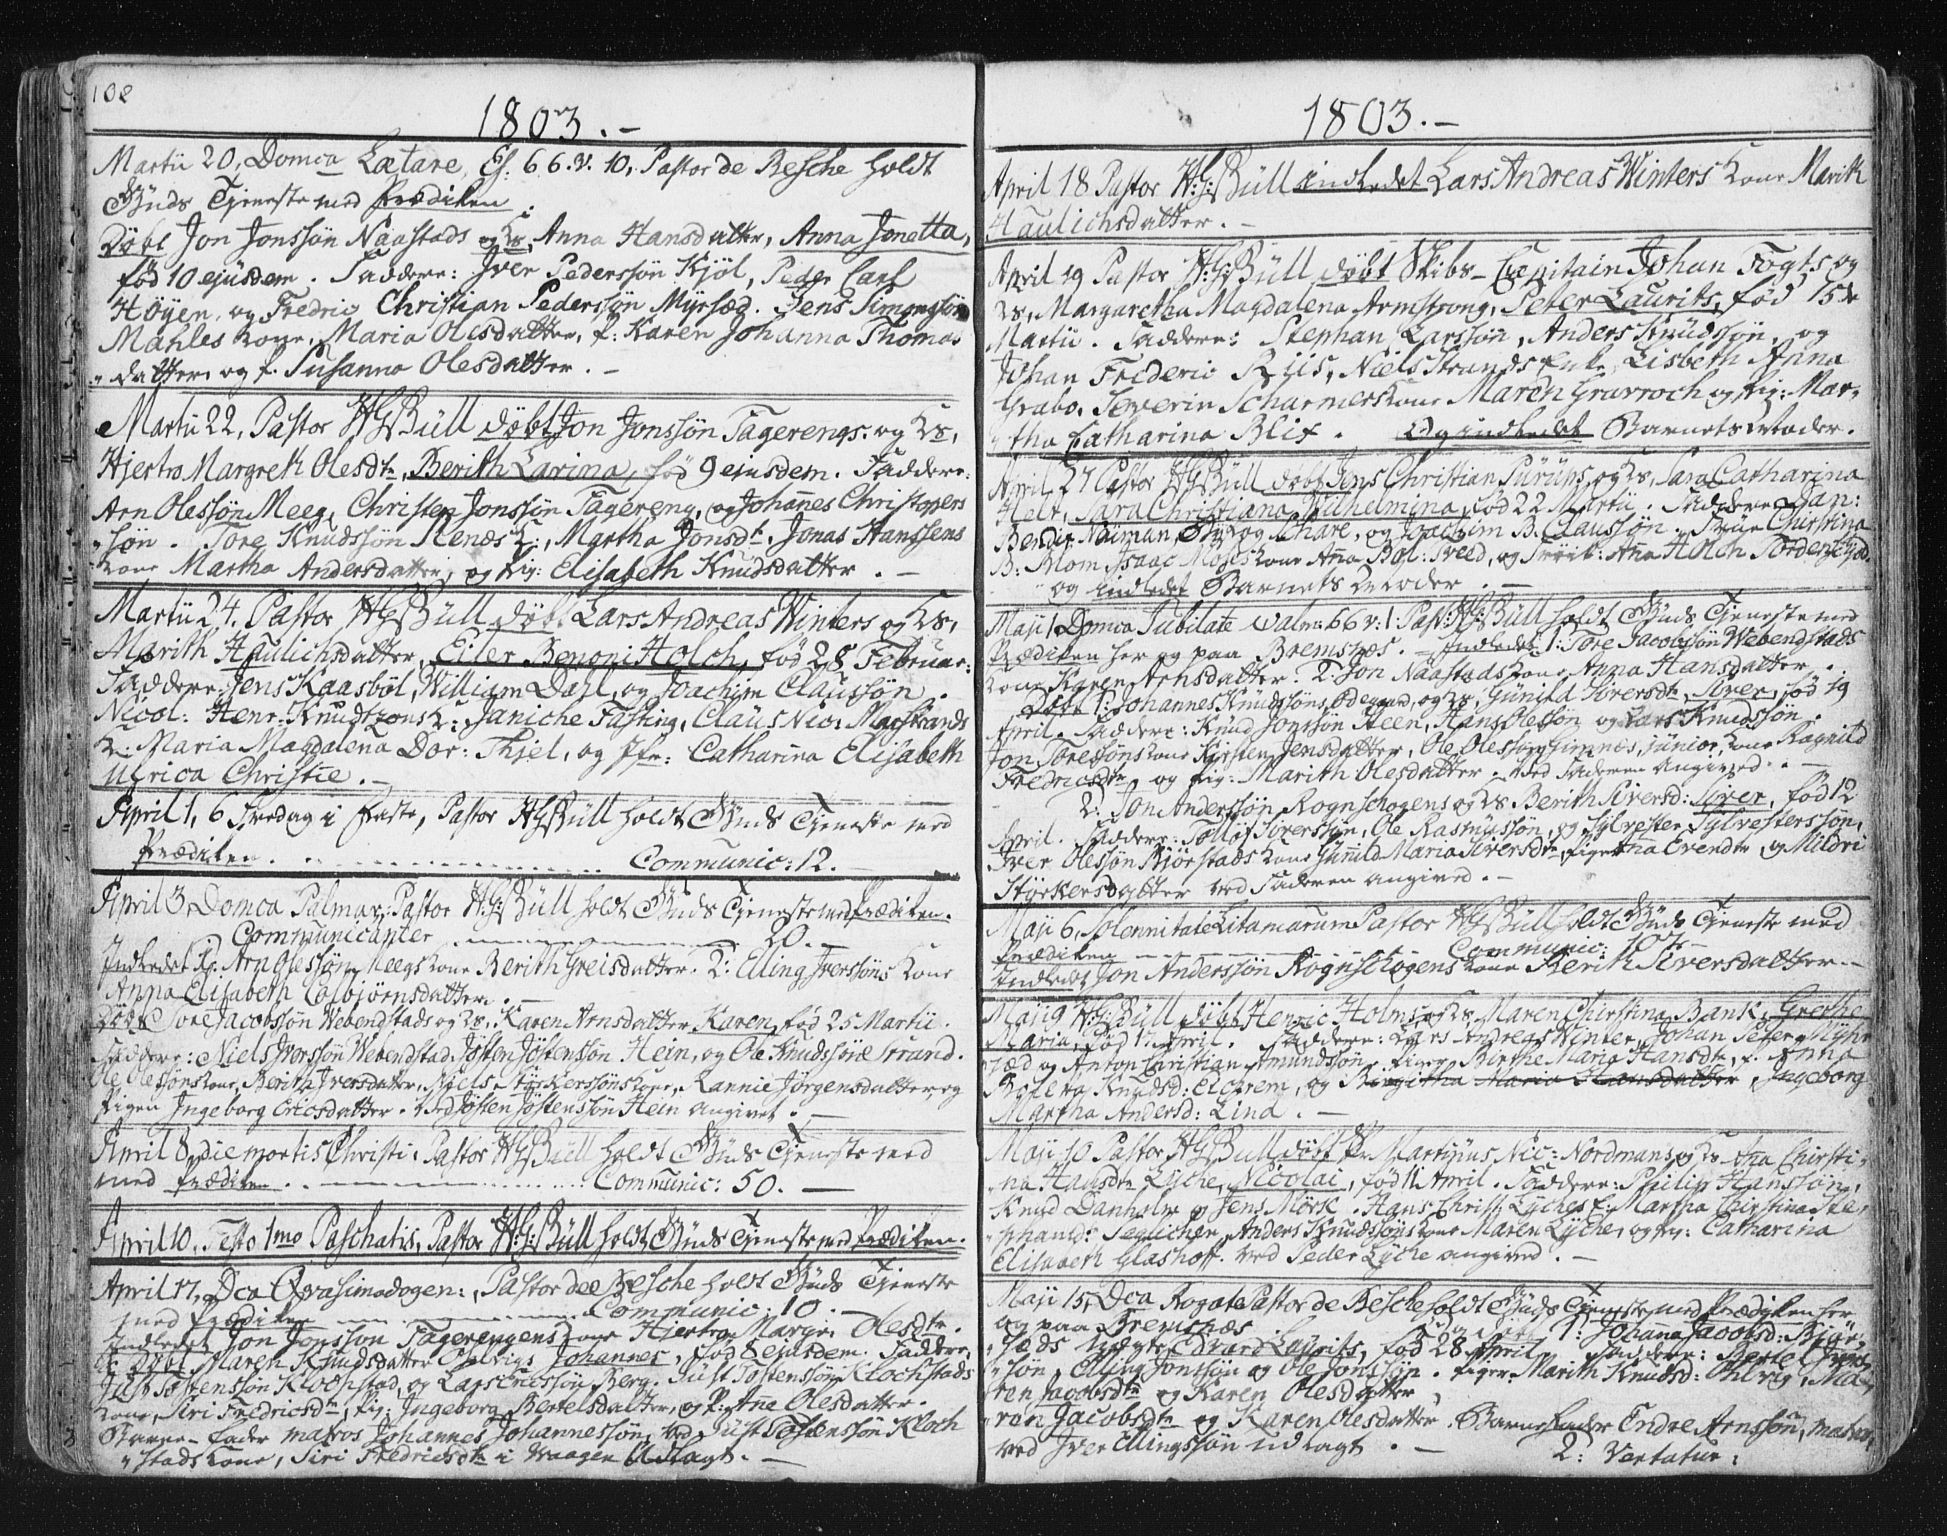 102
1803.-
Martii 20, Domca Lætare, Es. 66. v. 10, Pastor de Besche holdt
Guds Tjeneste med Prædiken.
Døbt Jon Jonssøn Naastads og Hs, Anna Hansdatter, Anna Jonetta,
fød 10 ejusdem. Faddere: Iver Pederssøn Kjøl, Peder Carl
Høyen, og Fredric Christian Pederssøn Myrsæd. Jens Simonssøn
Mahles Kone, Maria Olesdatter, p: Karen Johanna Thomas
"datter, og p. Susanna Olesdatter. -
Martii 22, Pastor HGBüll døbt Jon Jonssøn Fagerengs og Hs,
Hjertro Margreth Olesdtr, Berith Larina, fød 9 ejusdem. Faddere:
Arn Olessøn Meeg, Christen Jonssøn Fagereng, og Johannes Christophers
"søn. Tore Knudssøn Rends K:, Martha Jonsdt, Jonas Hanssens
Kone Martha Andersdatter, og pig: Elisabeth Knudsdatter. -
Martii 24. Pastor HGBüll døbt Lars Andreas Winters og Hs,
Marith Haulichsdatter, Eiler Benoni Holch, fød 28 Februar:
Faddere: Jens Kaasbøl, William Dahl, og Joachim Claussøn.
Nicol: Henr: Knudtzons K: Janiche Fasting, Claus Nic: Magstrands
K: Maria Magdalena Dor: Thjel, og Jfr: Catharina Elisabeth
Ulrica Christie. -
April 1, 6 Fredag i Faste, Pastor HGBüll holdt Guds Tjeneste med
Prædiken. Communic: 12. -
April 3, Domca Palmar: Pastor H:G:Büll holdt Guds Tjeneste med Prædiken.
Communicanter 20. -
Indledet 1: Arn Olessøn Meegs Kone Berith Greisdatter. 2: Elling Iverssøns Kone
Anna Elisabeth Casbjørnsdatter. -
Døbt Tore Jacobssøn Webenstads og Hs, Karen Arnsdatter Karen, fød 25 Martii.
Faddere: Niels Iverssøn Webenstad, Josten Jøstenssøn Hein, og Ole Knudssøn Strand.
Ole Olessøns Kone, Berith Iversdatter, Niels Størkerssøns Kone, Lannie Jørgensdatter, og
pigen Ingeborg Ericsdatter. Ved Josten Jøstenssøn Hein angivet. -
April 8, die mortis Christi, Pastor HGBüll holdt Guds Tjeneste med
med Prædiken. Communic: 50. -
April 10, Festo 1mo Paschatis, Pastor H:G:Büll holdt Guds Tjeneste med Prædiken.
April 17, Dca Qvasimodogen:, Pastor de Besche holdt Guds Tjeneste
med Prædiken Communic: 10. -
Indledet Jon Jonsson Fagerengens Kone Hjertro Margr: Olesdtr.
Døbt Maren Knudsdatter Ohlvigs Johannes, fød 8 ejusdem. Faddere:
Just Tostenssøn Klochstad, og Lars Ericssøn Berg. Just Tostenssøn Klochstads
Kone, Siri Fredricsdtr, pig: Ingeborg Bertelsdatter, og p: Ane Olesdatter.
Barne-fader matros Johannes Johannessøn, ved Just Tostenssøn Kloch
"stads Kone, Siri Fredricsdtr i Waagen udlagt. -
1803.-
April 18 Pastor H:G:Büll indledet Lars Andreas Winters Kone Marith
Haulichsdatter. -
April 19 Pastor H:G:Büll døbt Skibs-Capitain Johan Fogts og
Hs, Margaretha Magdalena Armstrong, Peter Laurits, fød 15de
Martii. Faddere: Stephan Larssøn, Anders Knudssøn, og
Johan Frideric Riis, Niels Strands Enke, Lisbeth Anna
Grabo, Severin Scharmers Kone Maren Gravroch og pig: Mar-
"tha Catharina Blix. Og indledet Barnets Moder.
April 27 Pastor HGBüll døbt Jens Christian Pürüps og Hs, Sara Catharina
Heltr, Sara Christiana Wilhelmina, fød 22 Martii. Faddere: Dan:
Bendix Naiman, Schare, og Joachim B. Claussøn. Frue Christina
B: Blom, Isaac Moses Kone Ana Bol: Sveed, og Frøik: Ana Holch Tordenskjold.
og indledt Barnets Moder. -
Maji 1 Domca Jubilate Psalm: 66 v: 1 Past: HGBüll holdt Guds Tjeneste med
Prædiken her og paa Bremsnes. - Indledet 1: Tore Jacobssøn Webendstads
Kone Karen Arnsdatter. 2: Jon Naastads Kone Anna Hansdatter.
Døbt 1: Johannes Knudssøns Ødegaard, og Hs, Gunild Iversdt, Iver, fød 19
April. Faddere: Knud Jonssøn Steen, Hans Olessøn og Lars Knudssøn.
Jon Toressøns Kone Kirsten Jensdatter, Ole Olessøn Gimnes, junior, Kone Ragnild
Fredricsdtr og pig: Marith Olesdatter. Ved Faderen angived. -
2: Jon Anderssøn Rognschogens og Hs Berith Siversd: Siver, fød 12
April. Faddere: Tolluf Iverssøn, Ole Rasmussøn, og Sylvester Sylvesterssøn,
Iver Olessøn Bjørstads Kone Gunild Maria Siversdtr, piger Ana Evendtr og Mildri
Størkersdatter ved Faderen angived. -
Maji 6, Solennitate Litamarum Pastor HGBüll holdt Guds Tjeneste med
Prædiken Communic: 107 -
Indledt Jon Anderssøn Rognschogens Kone Berith Siversdatter. -
Maji 9 H:G:Büll døbt Henric Holms og Hs, Maren Christina Bank, Grethe
Maria, fød 1 April. Faddere: Lars Andreas Winter, Johan Peter Myhr
sæd og Anton Christian Amundssøn. piger Birthe Maria Hansdtr, p. Anna
Bolena Knudsd: Elchrem, og Birgitha Maria Hansdatter, Ingeborg
Martha Andersd: Lind. -
Maji 10 Pastor HGBüll døbt Martinus Nic: Nordmans og Hs Ana Christi-
"na Hansdtr Lyche, Nicolai, fød 11 April. Faddere: Philip Hanssøn,
Knud Danholm og Jens Mørk. Hans Christ: Lyches E: Martha Christina Ste,
"phansd: Teglichen, Anders Knudssøns Kone Maren Lyche, og pig: Catharina
Elisabeth Glashoff. Ved Peder Lyche angived. -
Maji 15, Dca Rogate Pastor de Besche holdt Guds Tjeneste med Prædiken her
og paa Bremsnes 1: Johanna Jacobsd: Bjør-
"stads Edvard Laurits, fød 28 April. Faddere: Bertel Iver-
"søn, Elling Jonssøn og Ole Jonssøn. piger Marith Knudsd: Ohlvig, Ma-
ren Jacobsdtr og Karen Olesdatter
"ren Jacobsdtr og Karen Olesdatter. Barnefader Endre Arnssøn, matros,
ved Iver Ellingssøn udlagt. - 2: Vertatur: